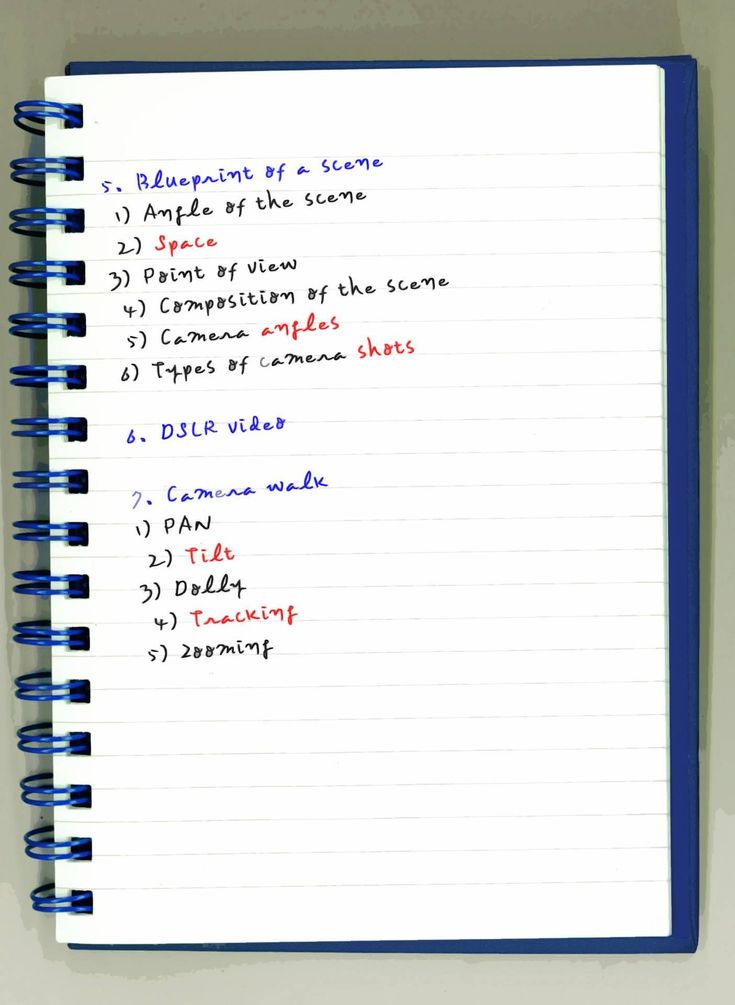 5. Blueprint of a scene
1) Angle of the scene
2) Space
3) Point of view
4) Composition of the scene
5) Camera angles
6) Types of camera shots
6. DSLR video
7. Camera walk
1) PAN
2) Tilt
3) Dolly
4) Tracking
5) Zooming